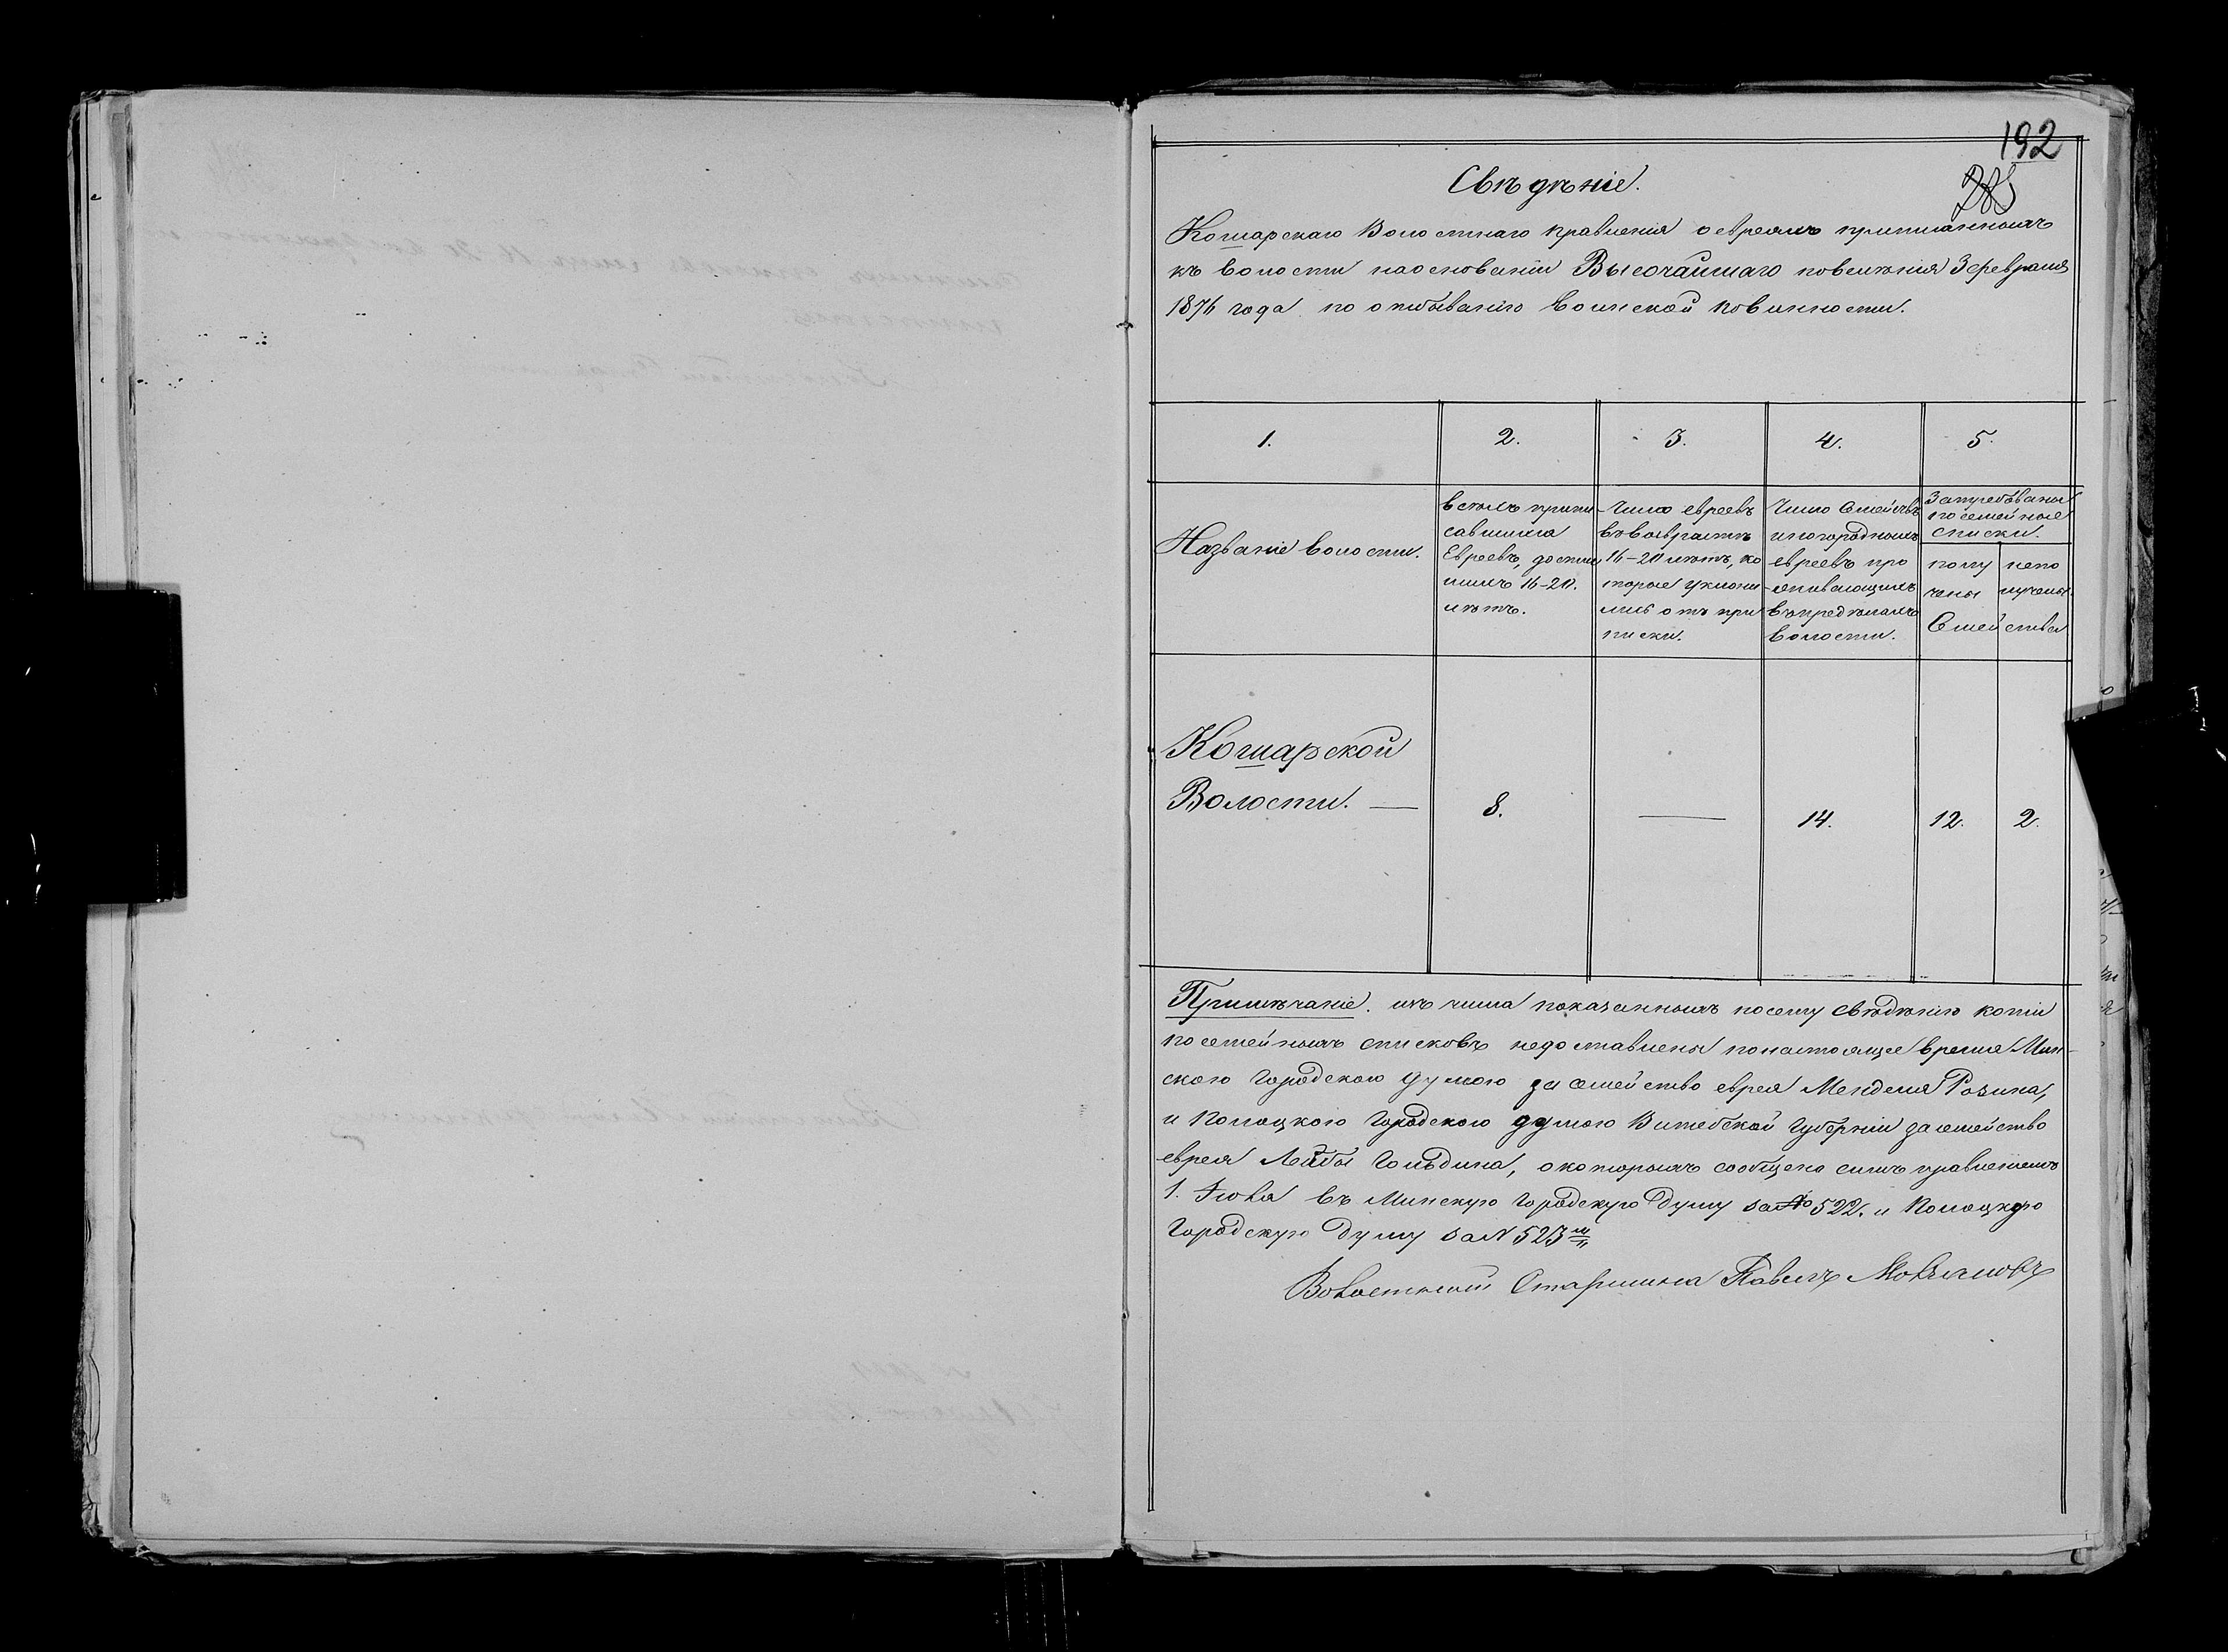 192
Свѣдѣніе.
Кошарскаго Волостнаго правленія о евреяхъ приписанныхъ
къ волости на основаніи Высочайшаго повелѣнія 3 февраля
1876 года по отбыванію воинской повинности.
1. 2. 3. 4. 5.
Названіе волости.
всѣхъ припи
савшихся
Евреевъ, достиг
шихъ 16-20.
лѣтъ.
Число евреевъ
въ возврастѣ
16-20 лѣтъ, ко
торые уклони
лись отъ при
писки.
Число Семействъ
иногородныхъ
евреевъ про
живающихъ
въ предѣлахъ
волости.
Затребованые
посемейные
списки.
полу
чены
непо
лучены.
Семейства
Кошарской
Волости. — 8. — 14. 12. 2.
Примѣчаніе. изъ числа показанныхъ по сему свѣдѣнію копіи
посемейныхъ списковъ недоставлены по настоящее время Мин-
скою Городскою думою за семейство еврея Менделя Розина,
и Полоцкою Городскою думою Витебской Губерніи за семейство
еврея Лейбы Гольдина, о которыхъ сообщено симъ правленіемъ
1. Іюля въ Минскую Городскую Думу за № 522. и Полоцкую
Городскую Думу за N 523
Волостной Старшина Павелъ